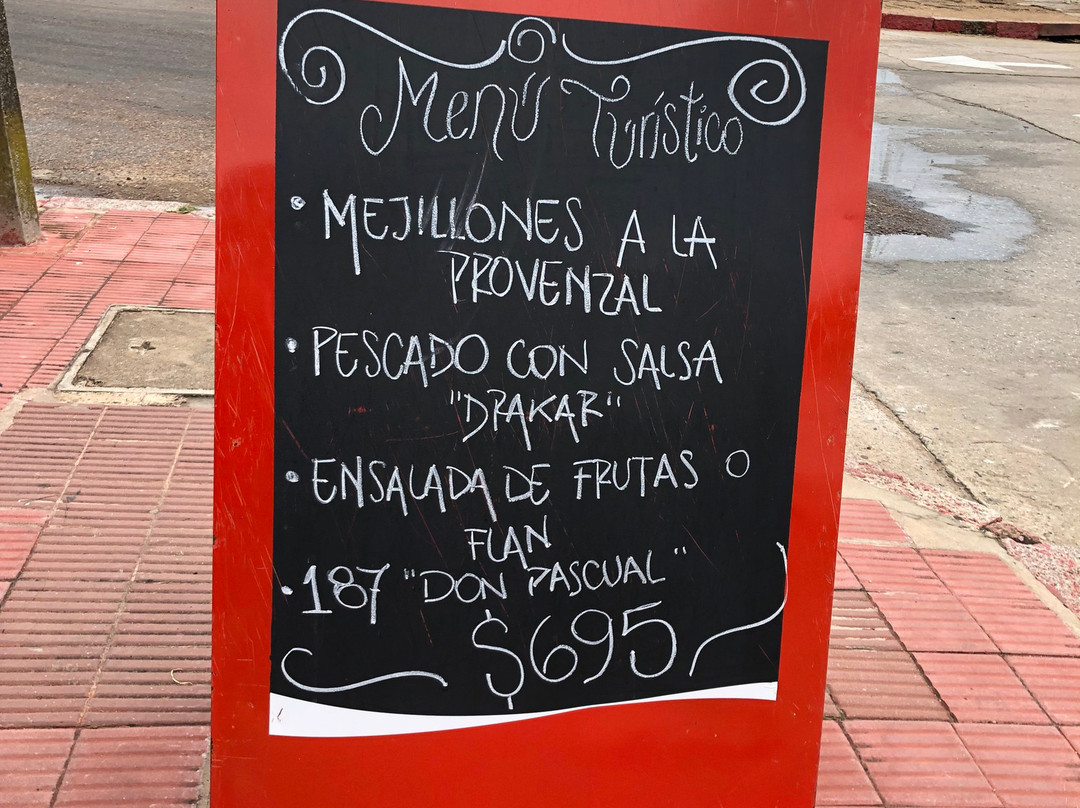 Menú Turístico
• MEJILLONES A LA
PROVENZAL
• PESCADO CON SALSA
"DRAKAR"
• ENSALADA DE FRUTAS O
FLAN
• 187 "DON PASCUAL"
$695